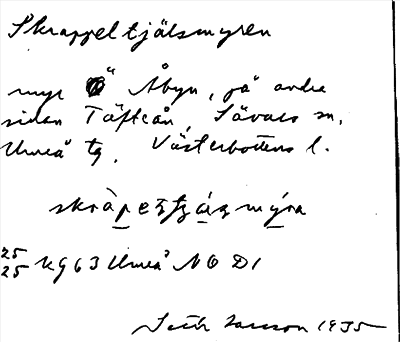 Skrappeltjälsmyren
myr Ö Åbyn, på andra
sidan Täfteån, Sävars sn,
Umeå tg. Västerbottens l.
skràpeltjälmýra
25
25 Kg 63 Umeå NO D1
Larsson 1935